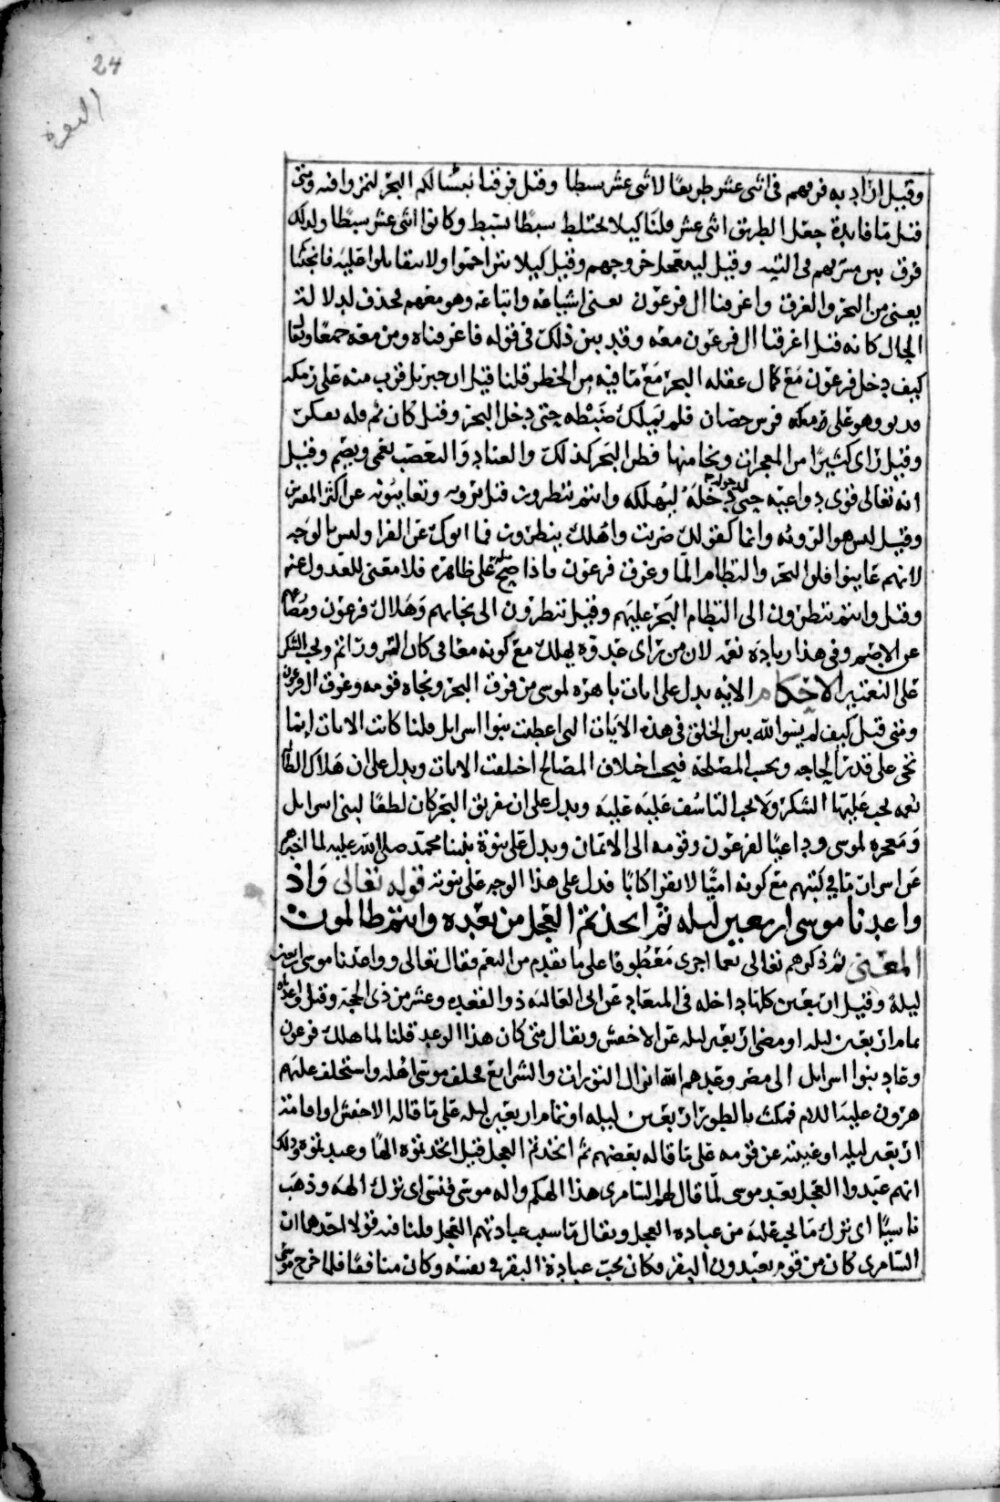 24
البقرة
وقيل اراد به فرقهم في اثني عشر طريقا لاثني عشر سبطا وقيل فرقنا بعثنا لكم البحر لتمروا فيه ومتى
قيل ما فايدة جعل الطريق اثني عشر قلنا كيلا يختلط سبطا بسبط وكانوا اثني عشر سبطا ولذلك
فرق بين مشربهم في التيه وقيل ليتعجل خروجهم وقيل كيلا يتزاحموا ولا يتقاتلوا عليه فانجيناكم
يعني من البحر والغرق واغرقنا ال فرعون يعني اشياعه واتباعه وهو معهم فحذف لدلالة
الحال كانه قيل اغرقنا ال فرعون معه وقد بين ذلك في قوله فاغرقناه ومن معه جميعا
كيف دخل فرعون مع كمال عقله البحر مع ما فيه من الخطر قلنا قيل ان جبريل قرب منه على رمكة
وهو على فرس حصان فلم يملك ضبطه حتى دخل البحر وقيل كان ثم
وقيل راى كثيرا من المعجزات ونجا منها فظن البحر كذلك والعناد والتعصب يعمي ويصم وقيل
انه تعالى قوى دواعيه حتى دخله ليهلكه وانتم تنظرون قيل ترونه وتعاينونه عن اكثر المفسرين
وقيل ليس هو الرؤية وانما كقولك ضربت واهلك ينظرون فما اتوك عن الفرا وليس بالوجه
لانهم عاينوا فلق البحر والتطام الما وغرق فرعون فاذا صح حمله على ظاهره فلا معنى للعدول عنه
وقيل وانتم تنظرون الى التطام البحر عليهم وقيل تنظرون الى نجاتهم وهلاك فرعون
عن الاصم وفي هذا زيادة نعمة لان من يرى عدوه يهلك مع كونه معافى كان السرور اتم ويجب الشكر
على النعمتين الاحكام الاية يدل على ايات باهرة لموسى من فرق البحر ونجاة قومه وغرق ال فرعون
ومتى قيل كيف لم يسو الله بين الخلق في هذه الايات التي اعطيت بنوا اسرايل قلنا كانت الايات انما
تجي على قدر الحاجة وبحسب المصلحة فيجب اختلاف المصالح اختلفت الايات ويدل على ان هلاك الظالم
نعمة يجب عليها الشكر ولا يجب التاسف عليه ويدل على ان تفريق البحر كان لطفا لبني اسرايل
ومعجزة لموسى وداعيا لفرعون وقومه الى الايمان ويدل على نبوة نبينا محمد صلى الله عليه لما اخبرهم
عن اسرار ما في كتبهم مع كونه اميا لا يقرا كتابا فدل على هذا الوجه على نبوته قوله تعالى واذ
واعدنا موسى اربعين ليلة ثم اتخذتم العجل من بعده وانتم ظالمون
المعنى ثم ذكرهم تعالى نعما اخرى معطوفا على ما تقدم من النعم فقال تعالى وواعدنا موسى اربعين
ليلة وقيل اربعين كلها داخلة في الميعاد عن ابي العالية ذو القعدة وعشر من ذي الحجة وقيل
تمام اربعين ليلة او مضي اربعين ليلة عن الاخفش ويقال متى كان هذا الوعد قلنا لما هلك فرعون
وعاد بنوا اسرايل الى مصر وعدهم الله انزال التوراة والشرايع فخلف موسى اهله واستخلف عليهم
هرون عليه السلام فمكث بالطور اربعين ليلة او تمام اربعين ليلة على ما قاله الاخفش او اقامته
اربعين ليلة او غيبته عن قومه على ما قاله بعضهم ثم اتخذتم العجل قيل اتخذتموه الها وعبدتموه وذلك
انهم عبدوا العجل بعد موسى لما قال لهم السامري هذا الهكم واله موسى فنسي اي ترك الهه وذهب
ناسيا اي ترك ما يجب عليه من عبادة العجل ويقال ما سبب عبادتهم العجل قلنا فيه قولا احدهما ان
السامري كان من قوم يعبدون البقر وكان يحب عبادة البقر في نفسه وكان منافقا فلما خرج موسى